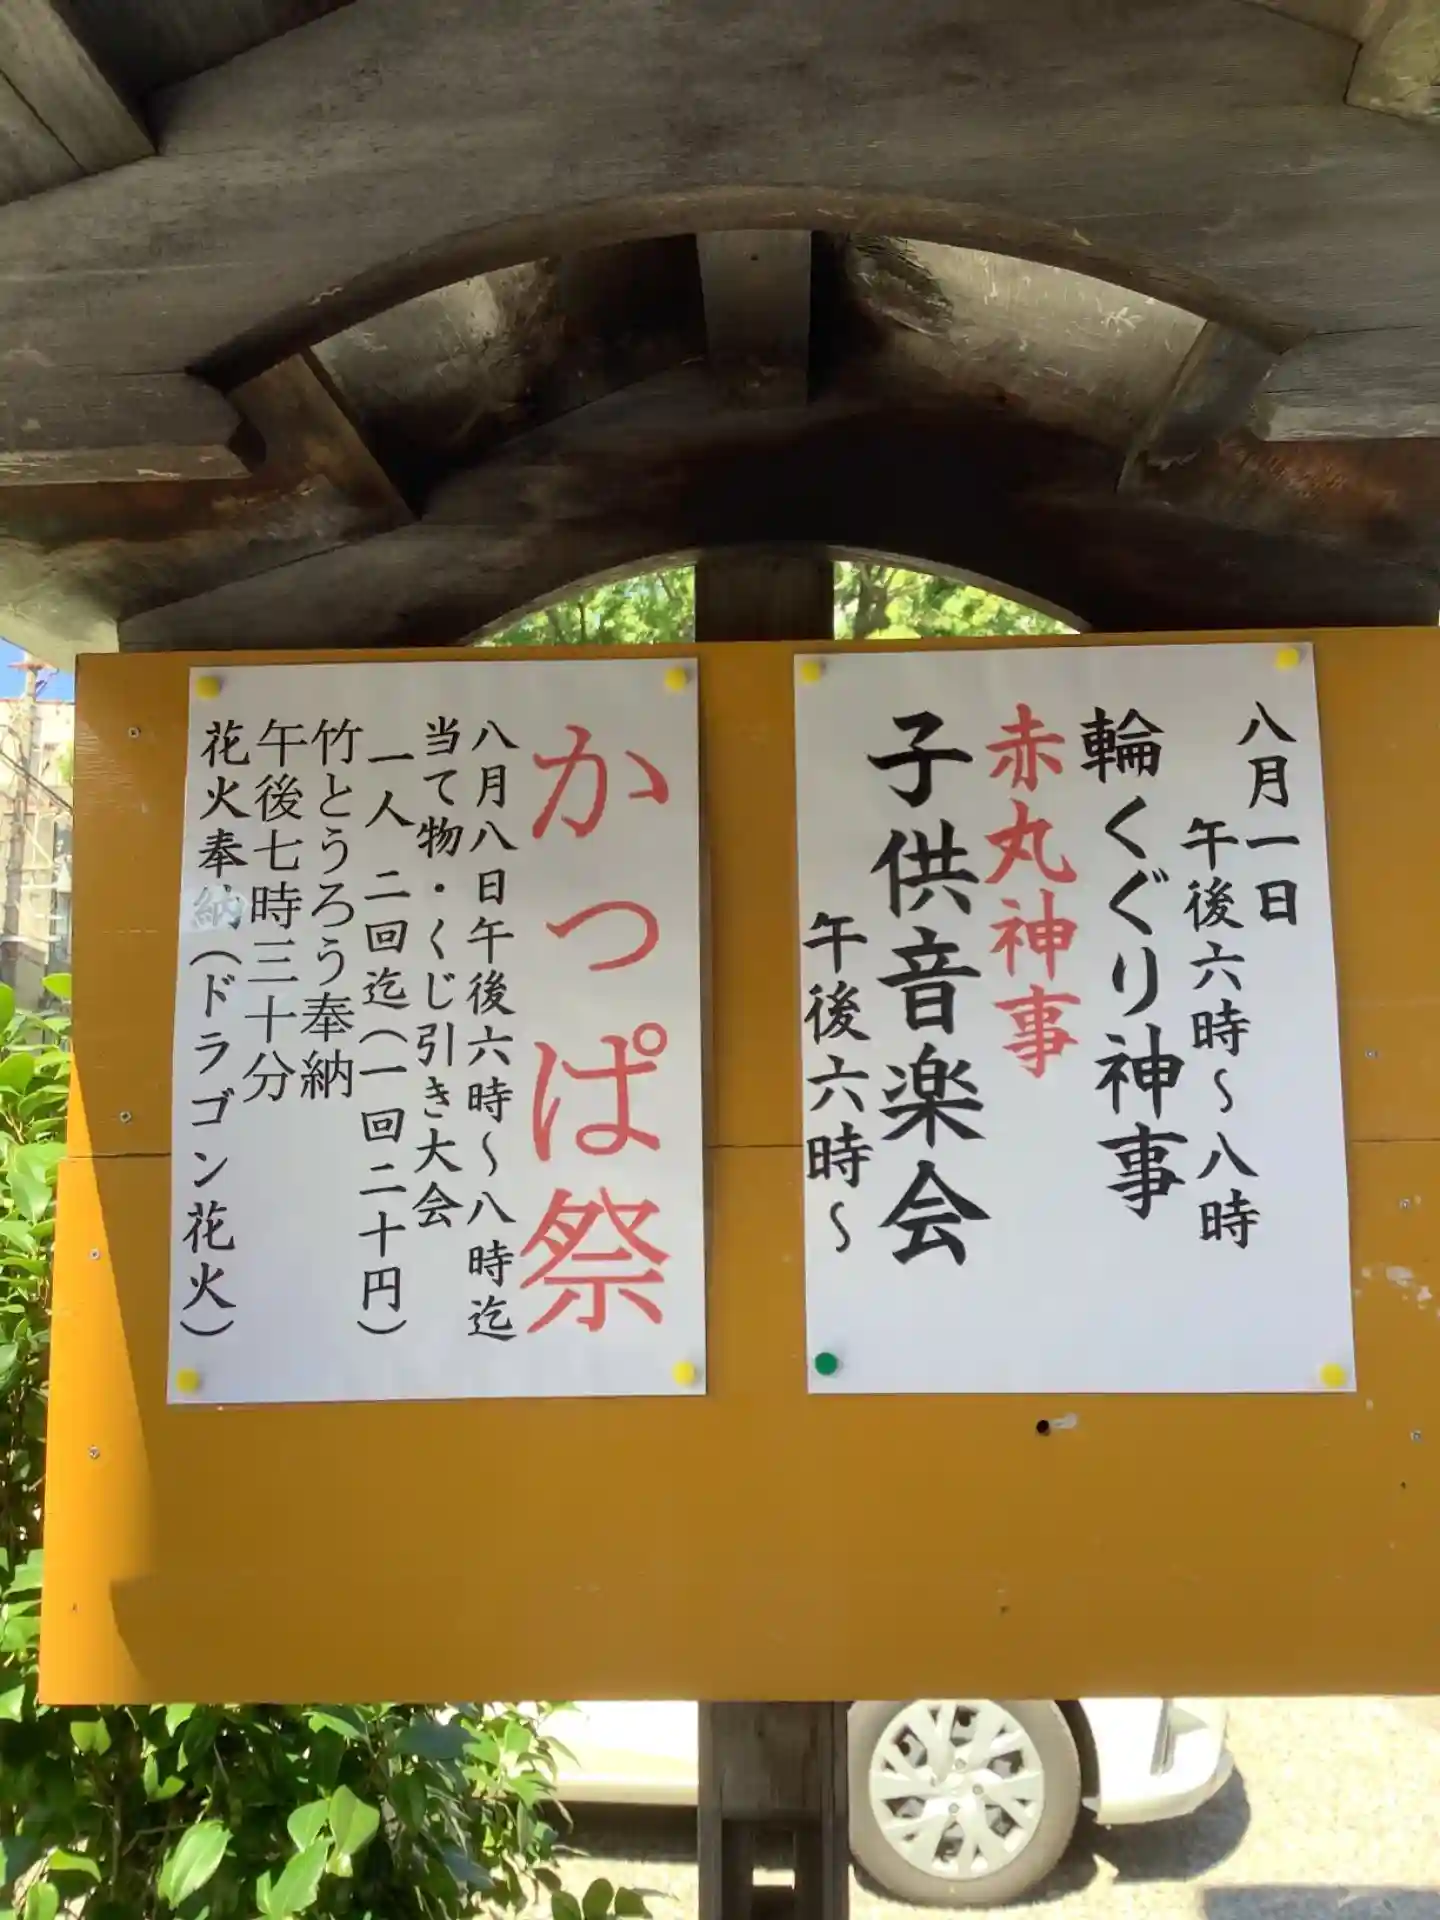 八月一日
午後六時～八時
輪くぐり神事
赤丸神事
子供音楽会
午後六時～
かっぱ祭
八月八日午後六時～八時迄
当て物・くじ引き大会
一人 二回迄(一回二十円)
竹とうろう奉納
午後七時三十分
花火奉納(ドラゴン花火)